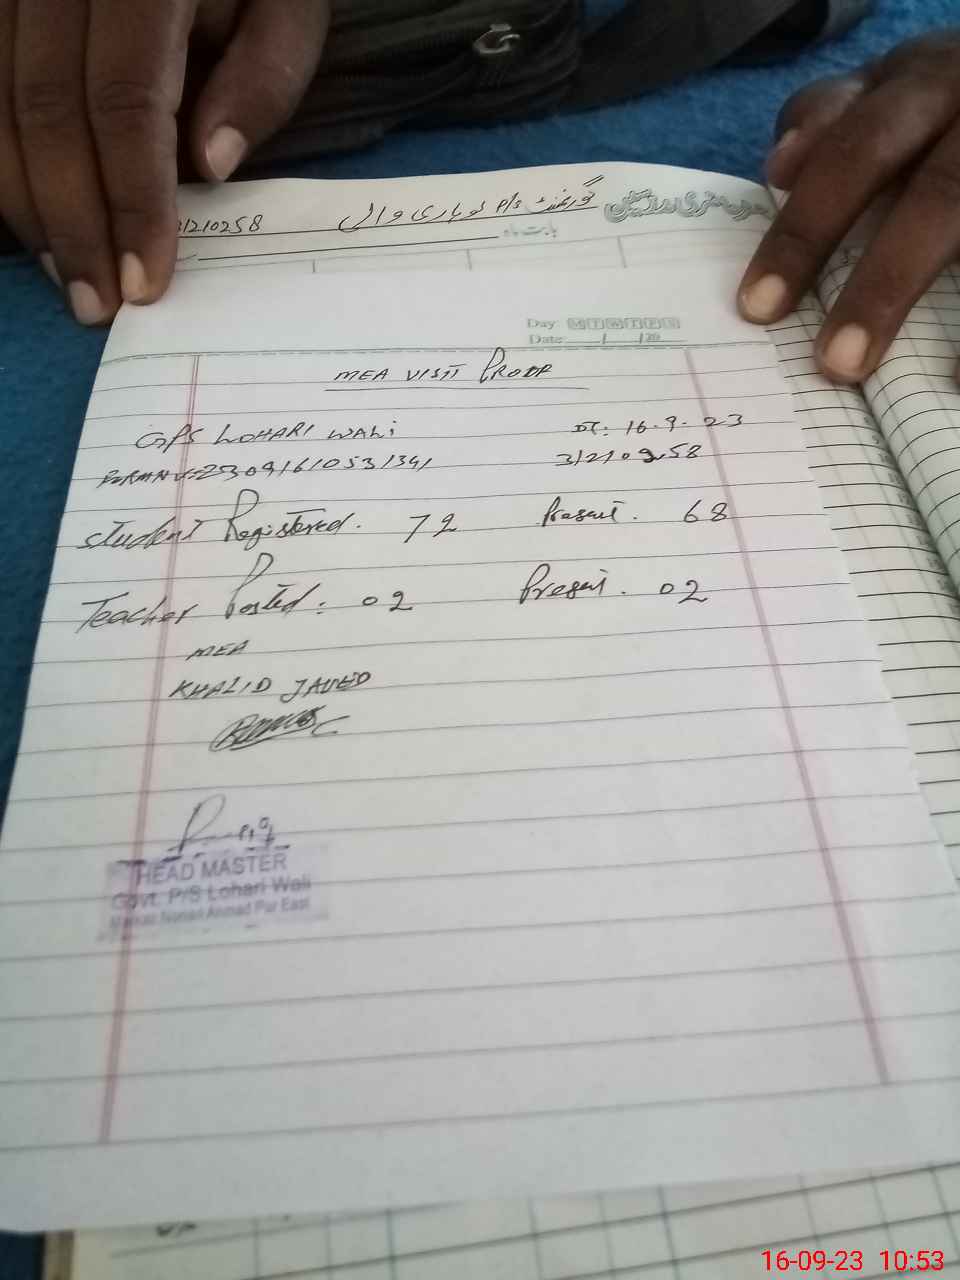 31210258 گورنمنٹ P/S لوہاری والی
بابت ماہ
Day M T W T F S
Date / /20
MEA VISIT PROOF
GPS LOHARI WALI DT: 16.9.23
31210258
Student Registered. 72 Present. 68
Teacher Posted: 02 Present. 02
MEA
KHALID JAVED
HEAD MASTER
Govt. P/S Lohari Wali
Markaz Noorari Ahmad Pur East
16-09-23 10:53